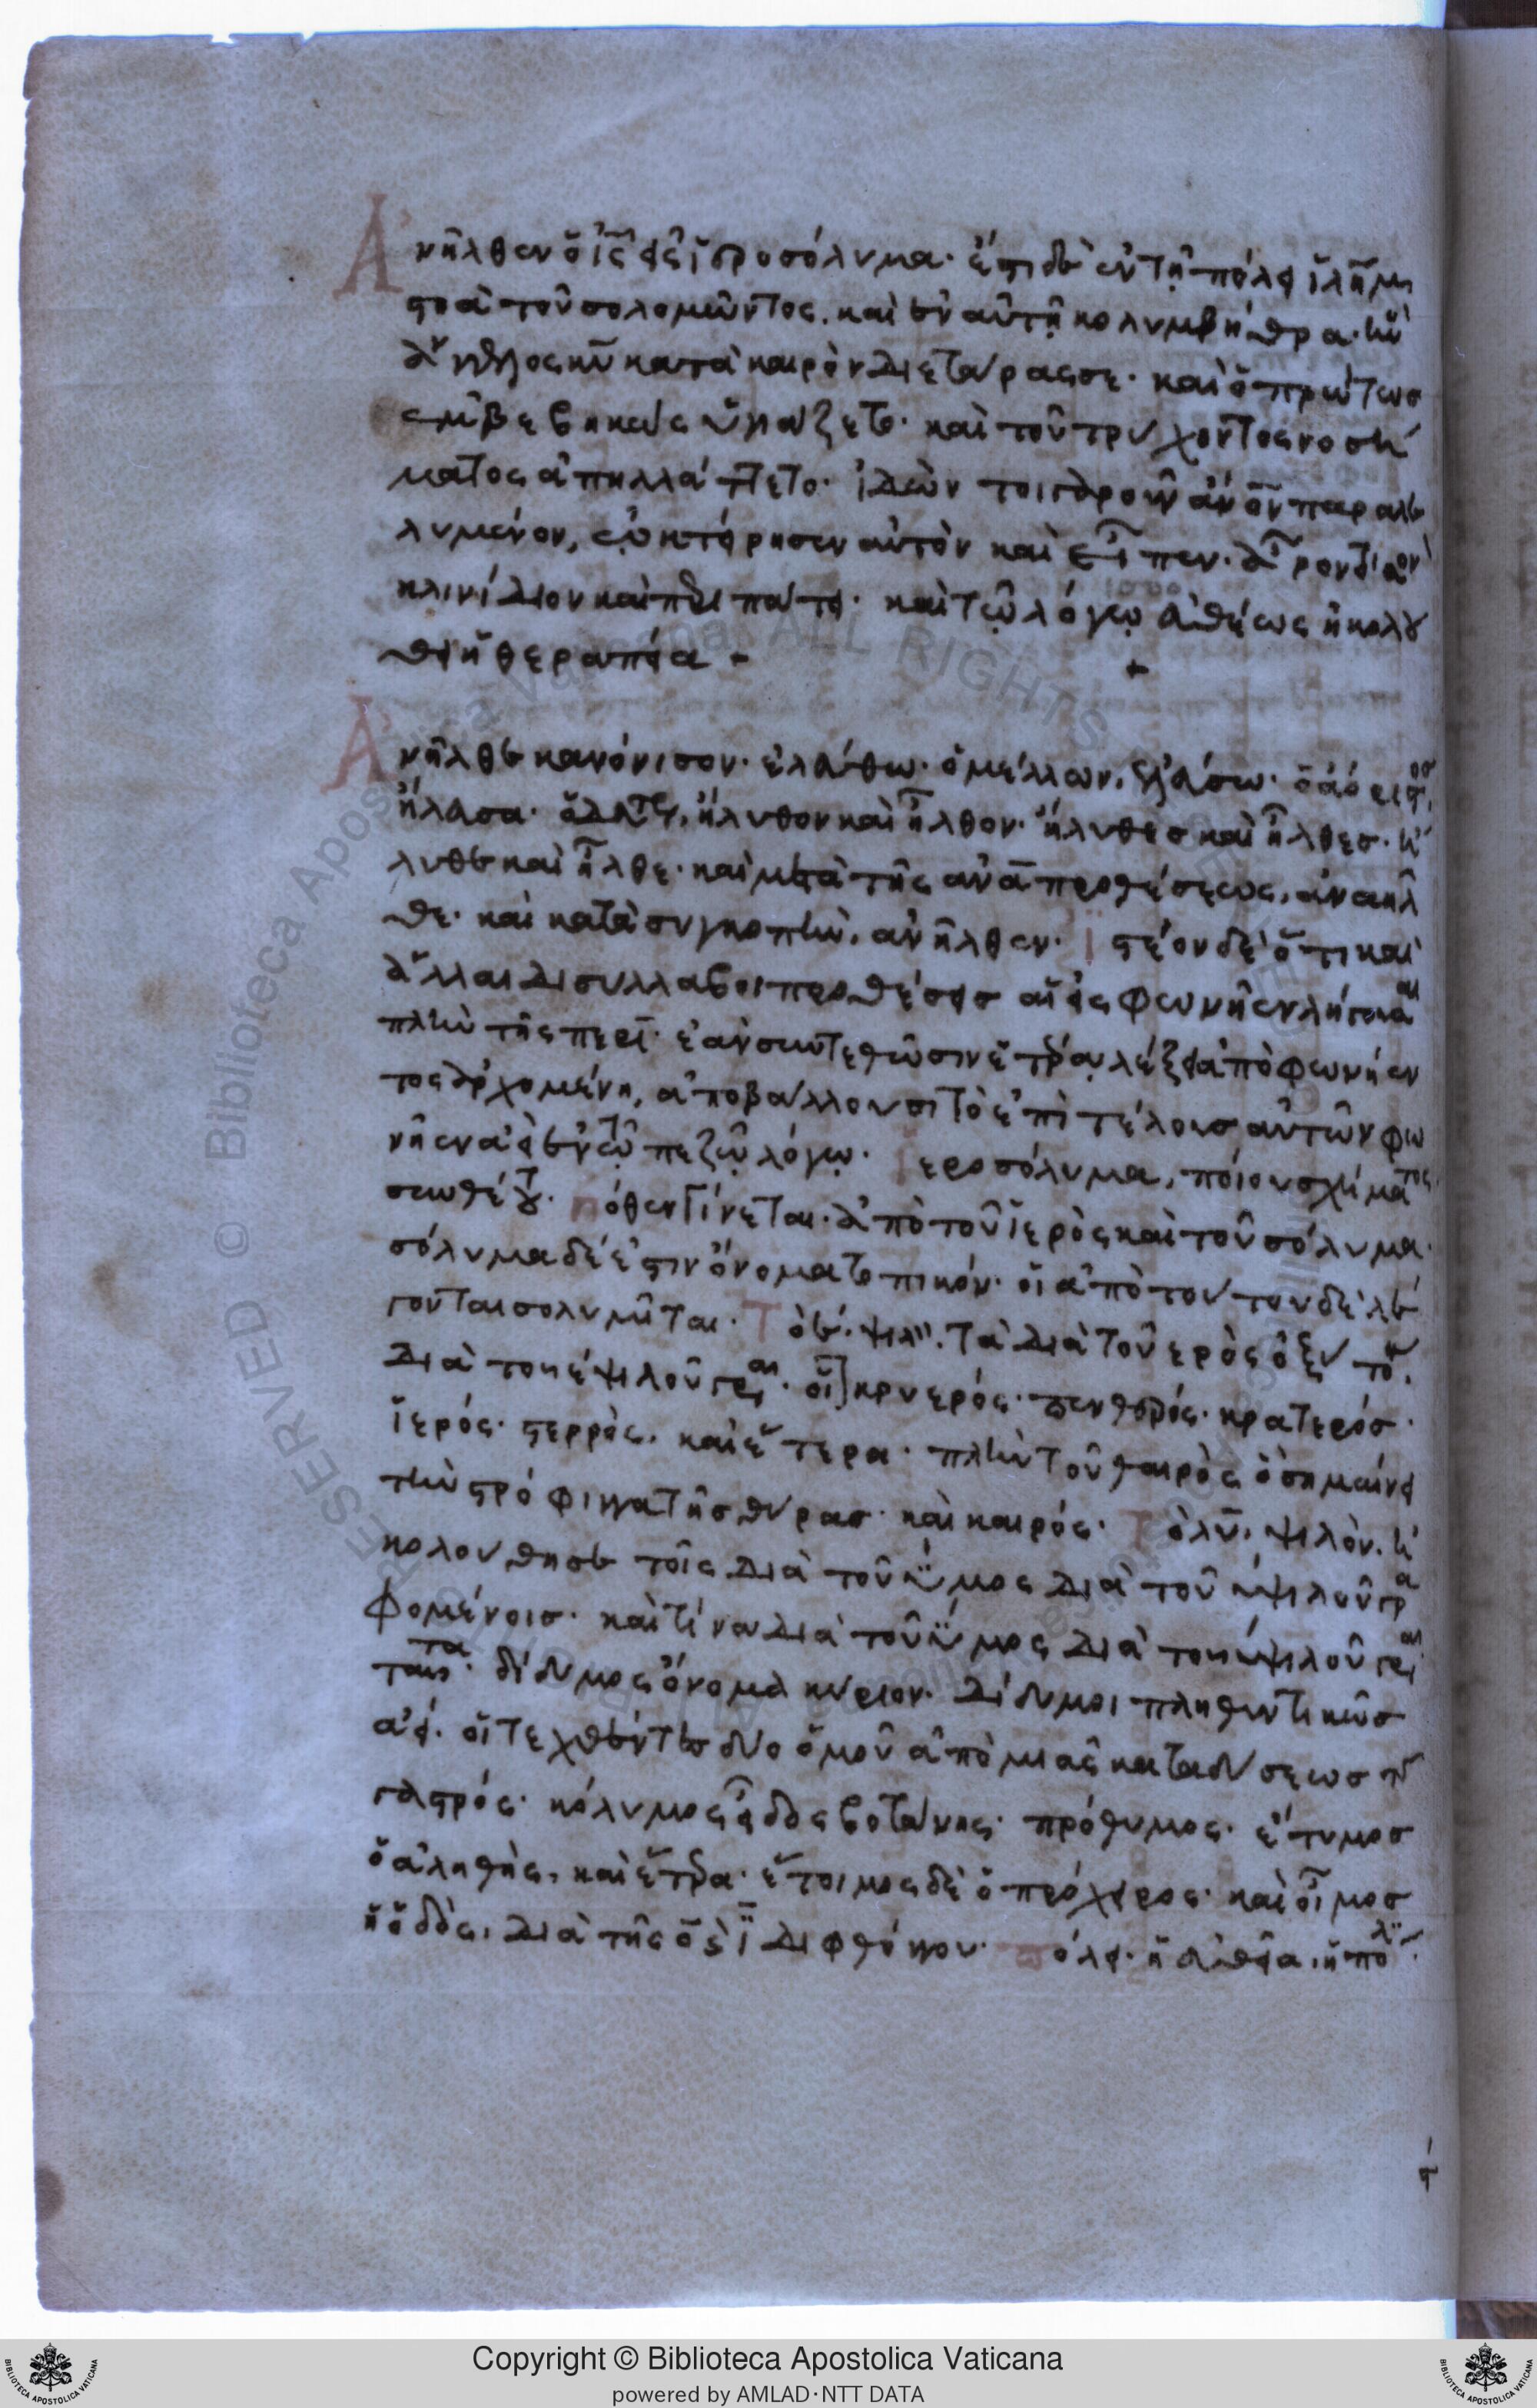 Ἀνῆλθεν ὁ ἰ̅ς̅ εἰς ἱεροσόλυμα· ἔστι δὲ ἐν τῇ πόλει ἰλη̅μ
στοὰ τοῦ σολομῶντος. καὶ ἐν αὐτῇ κολυμβήθρα· ἣν
ἄγγελος κῡ κατὰ καιρὸν διετάρασσε· καὶ ὁ πρώτως
ἐμβεβηκὼς ὑγιάζετο· καὶ τοῦ τρύχοντος νοσή
ματος ἀπηλλάττετο· ἰδὼν τοιγαροῦν ἄν̅ο̅ν̅ παραλε
λυμένον, ὠκτείρησεν αὐτὸν καὶ εἶπεν· ἆρον τὸ
κλινίδιον καὶ περιπάτει· καὶ τῷ λόγῳ εὐθέως ἠκολού
θει ἡ θεραπεία
Ἀνῆλθε κανόνισον· ἐλεύθω· ὁ μέλλων, ἐλεύσω· ὁ ἀόριστος,
ἤλευσα· ὁ δεύτερος, ἤλυθον καὶ ἦλθον· ἤλυθες καὶ ἦλθες· ἤ
λυθε καὶ ἦλθε· καὶ μετὰ τῆς ἀνὰ προθέσεως, ἀναῆλ
θε· καὶ κατὰ συγκοπὴν, ἀνῆλθεν· Ἰστέον δὲ ὅτι καὶ
ἄλλαι δισύλλαβοι προθέσεις αἱ εἰς φωνῆεν λήγουσαι
πλὴν τῆς περὶ· ἐὰν συντεθῶσιν ἑτέρᾳ λέξει ἀπὸ φωνήεν
τος ἀρχομένῃ, ἀποβάλλουσι τὸ ἐπὶ τέλους αὐτῶν φω
νῆεν ἀεὶ ἐν τῷ πεζῷ λόγῳ· Ἱεροσόλυμα, ποίου σχήματος·
συνθέτου· πόθεν γίνεται· ἀπὸ τοῦ ἱερὸς καὶ τοῦ σόλυμα·
σόλυμα δέ ἐστιν ὄνομα τοπικόν· οἱ ἀπὸ τούτου δὲ λέ
γονται σολυμῖται· Τὸ ε· ψιλόν· τὰ διὰ τοῦ ερὸς ὀξύτονα,
διὰ τοῦ ε ψιλοῦ γράφεται· οἷον κρυερός· πενθερός· κρατερός·
ἱερός· στερρὸς, καὶ ἕτερα· πλὴν τοῦ θαιρὸς ὁ σημαίνει
τὴν στρόφιγγα τῆς θύρας· καὶ καιρός· Τὸ λυ, ψιλόν. ἠ
κολούθησε τοῖς διὰ τοῦ υμος διὰ τοῦ υ ψιλοῦ γρα
φομένοις· καὶ τίνα διὰ τοῦ υμος διὰ τοῦ υ ψιλοῦ γράφον
ται· δίδυμος ὄνομα κύριον· δίδυμοι πληθυντικῶς
ἀεὶ. οἱ τεχθέντες δύο ὁμοῦ ἀπὸ μιᾶς καταδύσεως τῆς
γαστρός· κόλυμος εἶδος βοτάνης· πρόθυμος· ἔτυμος
ὁ ἀληθὴς, καὶ ἕτερα· ἕτοιμος δὲ ὁ πρόχειρος· καὶ οἶμος
ἡ ὁδὸς, διὰ τῆς ο̅ς ϊ διφθόγγου· πόλει· ἡ εὐθεῖα, ἡ πόλις·
Copyright © Biblioteca Apostolica Vaticana
powered by AMLAD·NTT DATA